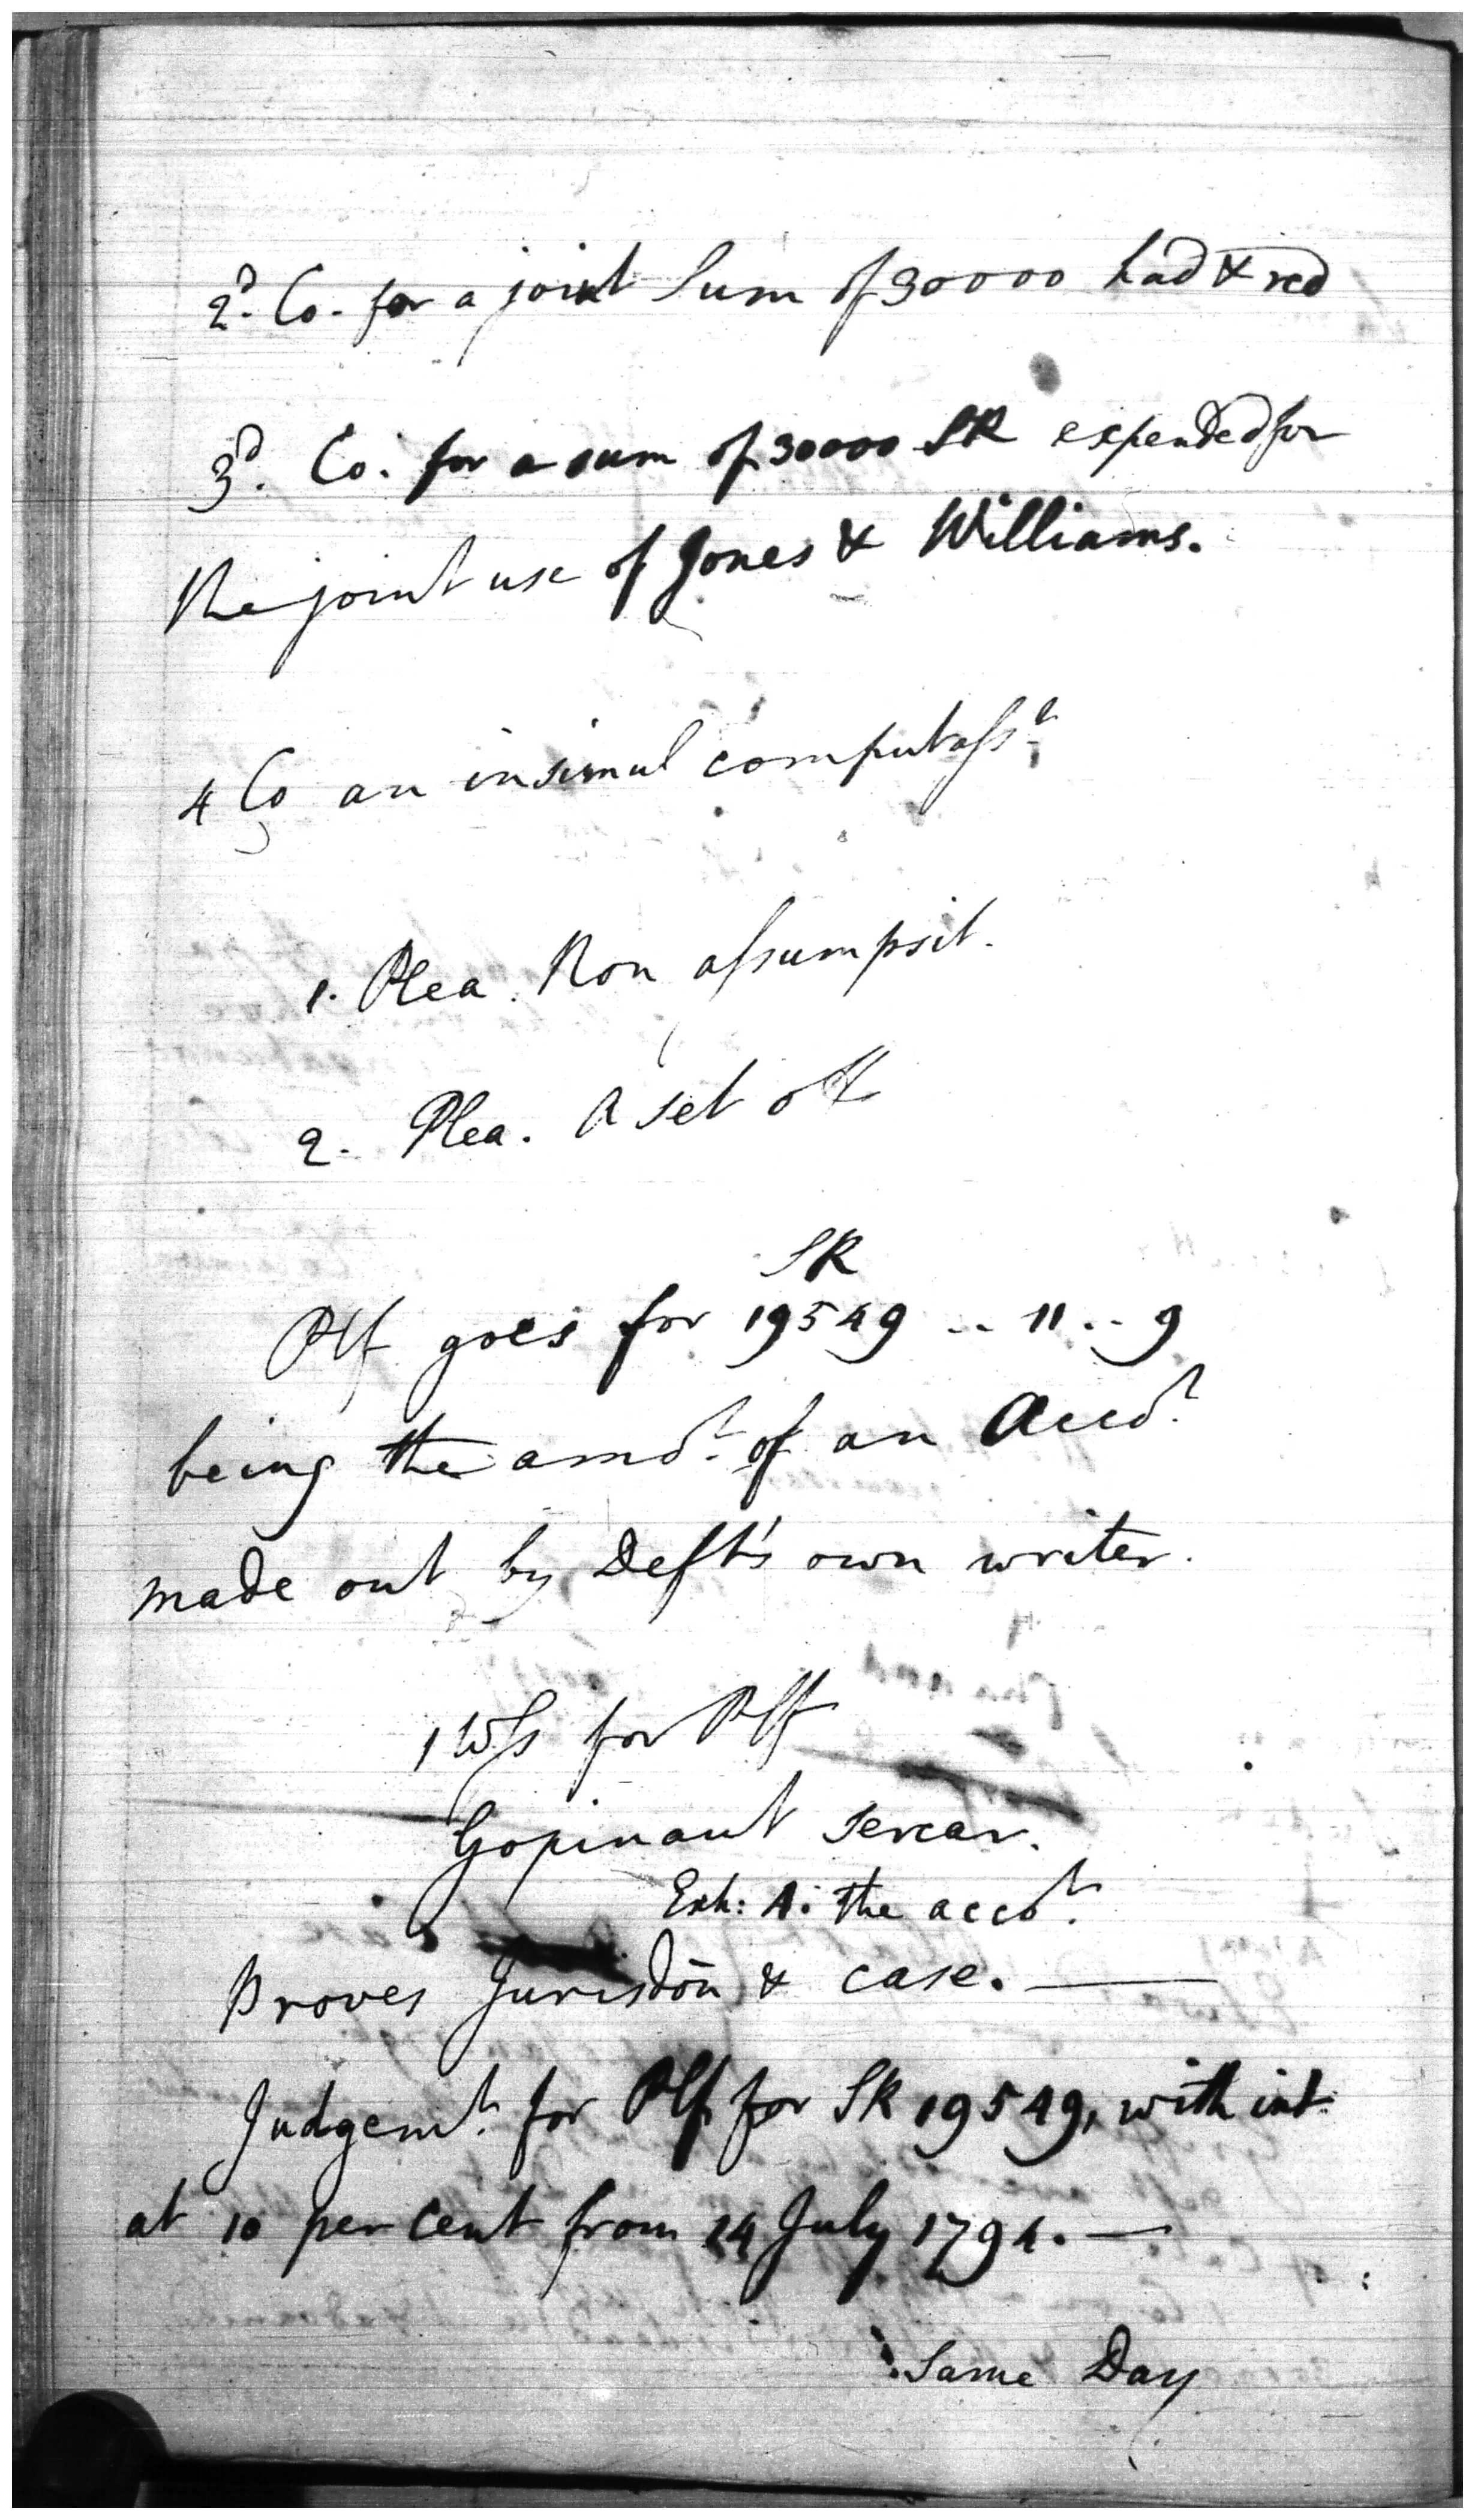 2d. Co. for a joint Sum of 30000 had & red
3d. Co. for a sum of 30000 SR expended for
the joint use of Jones & Williams.
4 Co an insimul computasst
1. Plea. Non assumpsit.
2. Plea. A set off
SR
Plf goes for 19549 .. 11 .. 9
being the amot. of an Accot.
made out by Deft's own writer.
1 Wss for Plf
Gopinaut Sercar.
Exh: A. the accot.
Proves Jurisdon & case. —
Judgemt. for Plf for SR 19549, with int.
at 10 per Cent from 24 July 1794. —
Same Day